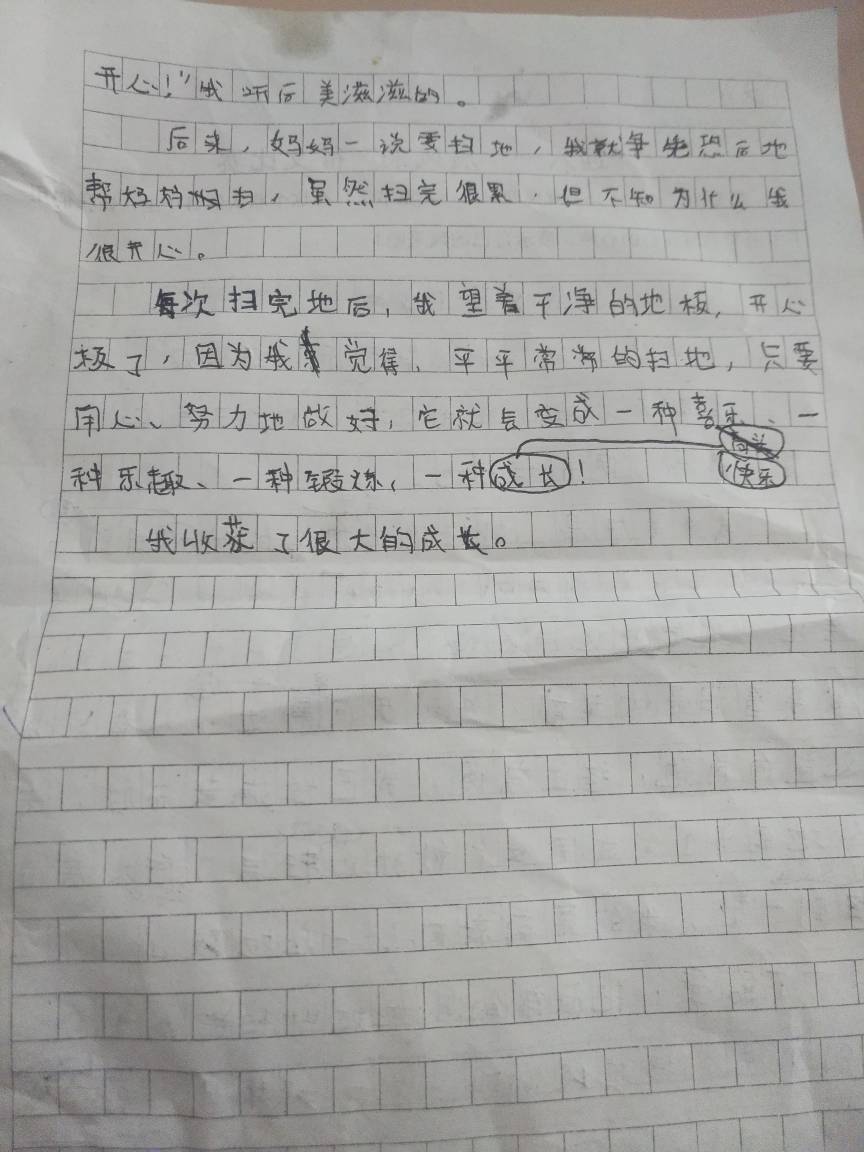 开心!”我听后美滋滋的。
后来,妈妈一说要扫地,我就争先恐后地
帮妈妈扫,虽然扫完很累,但不知为什么我
很开心。
每次扫完地后,我望着干净的地板,开心
极了,因为我觉得,平平常常的扫地,只要
用心、努力地做好,它就会变成一种喜乐、一
种乐趣、一种锻炼,一种成长!
快乐
我收获了很大的成长。